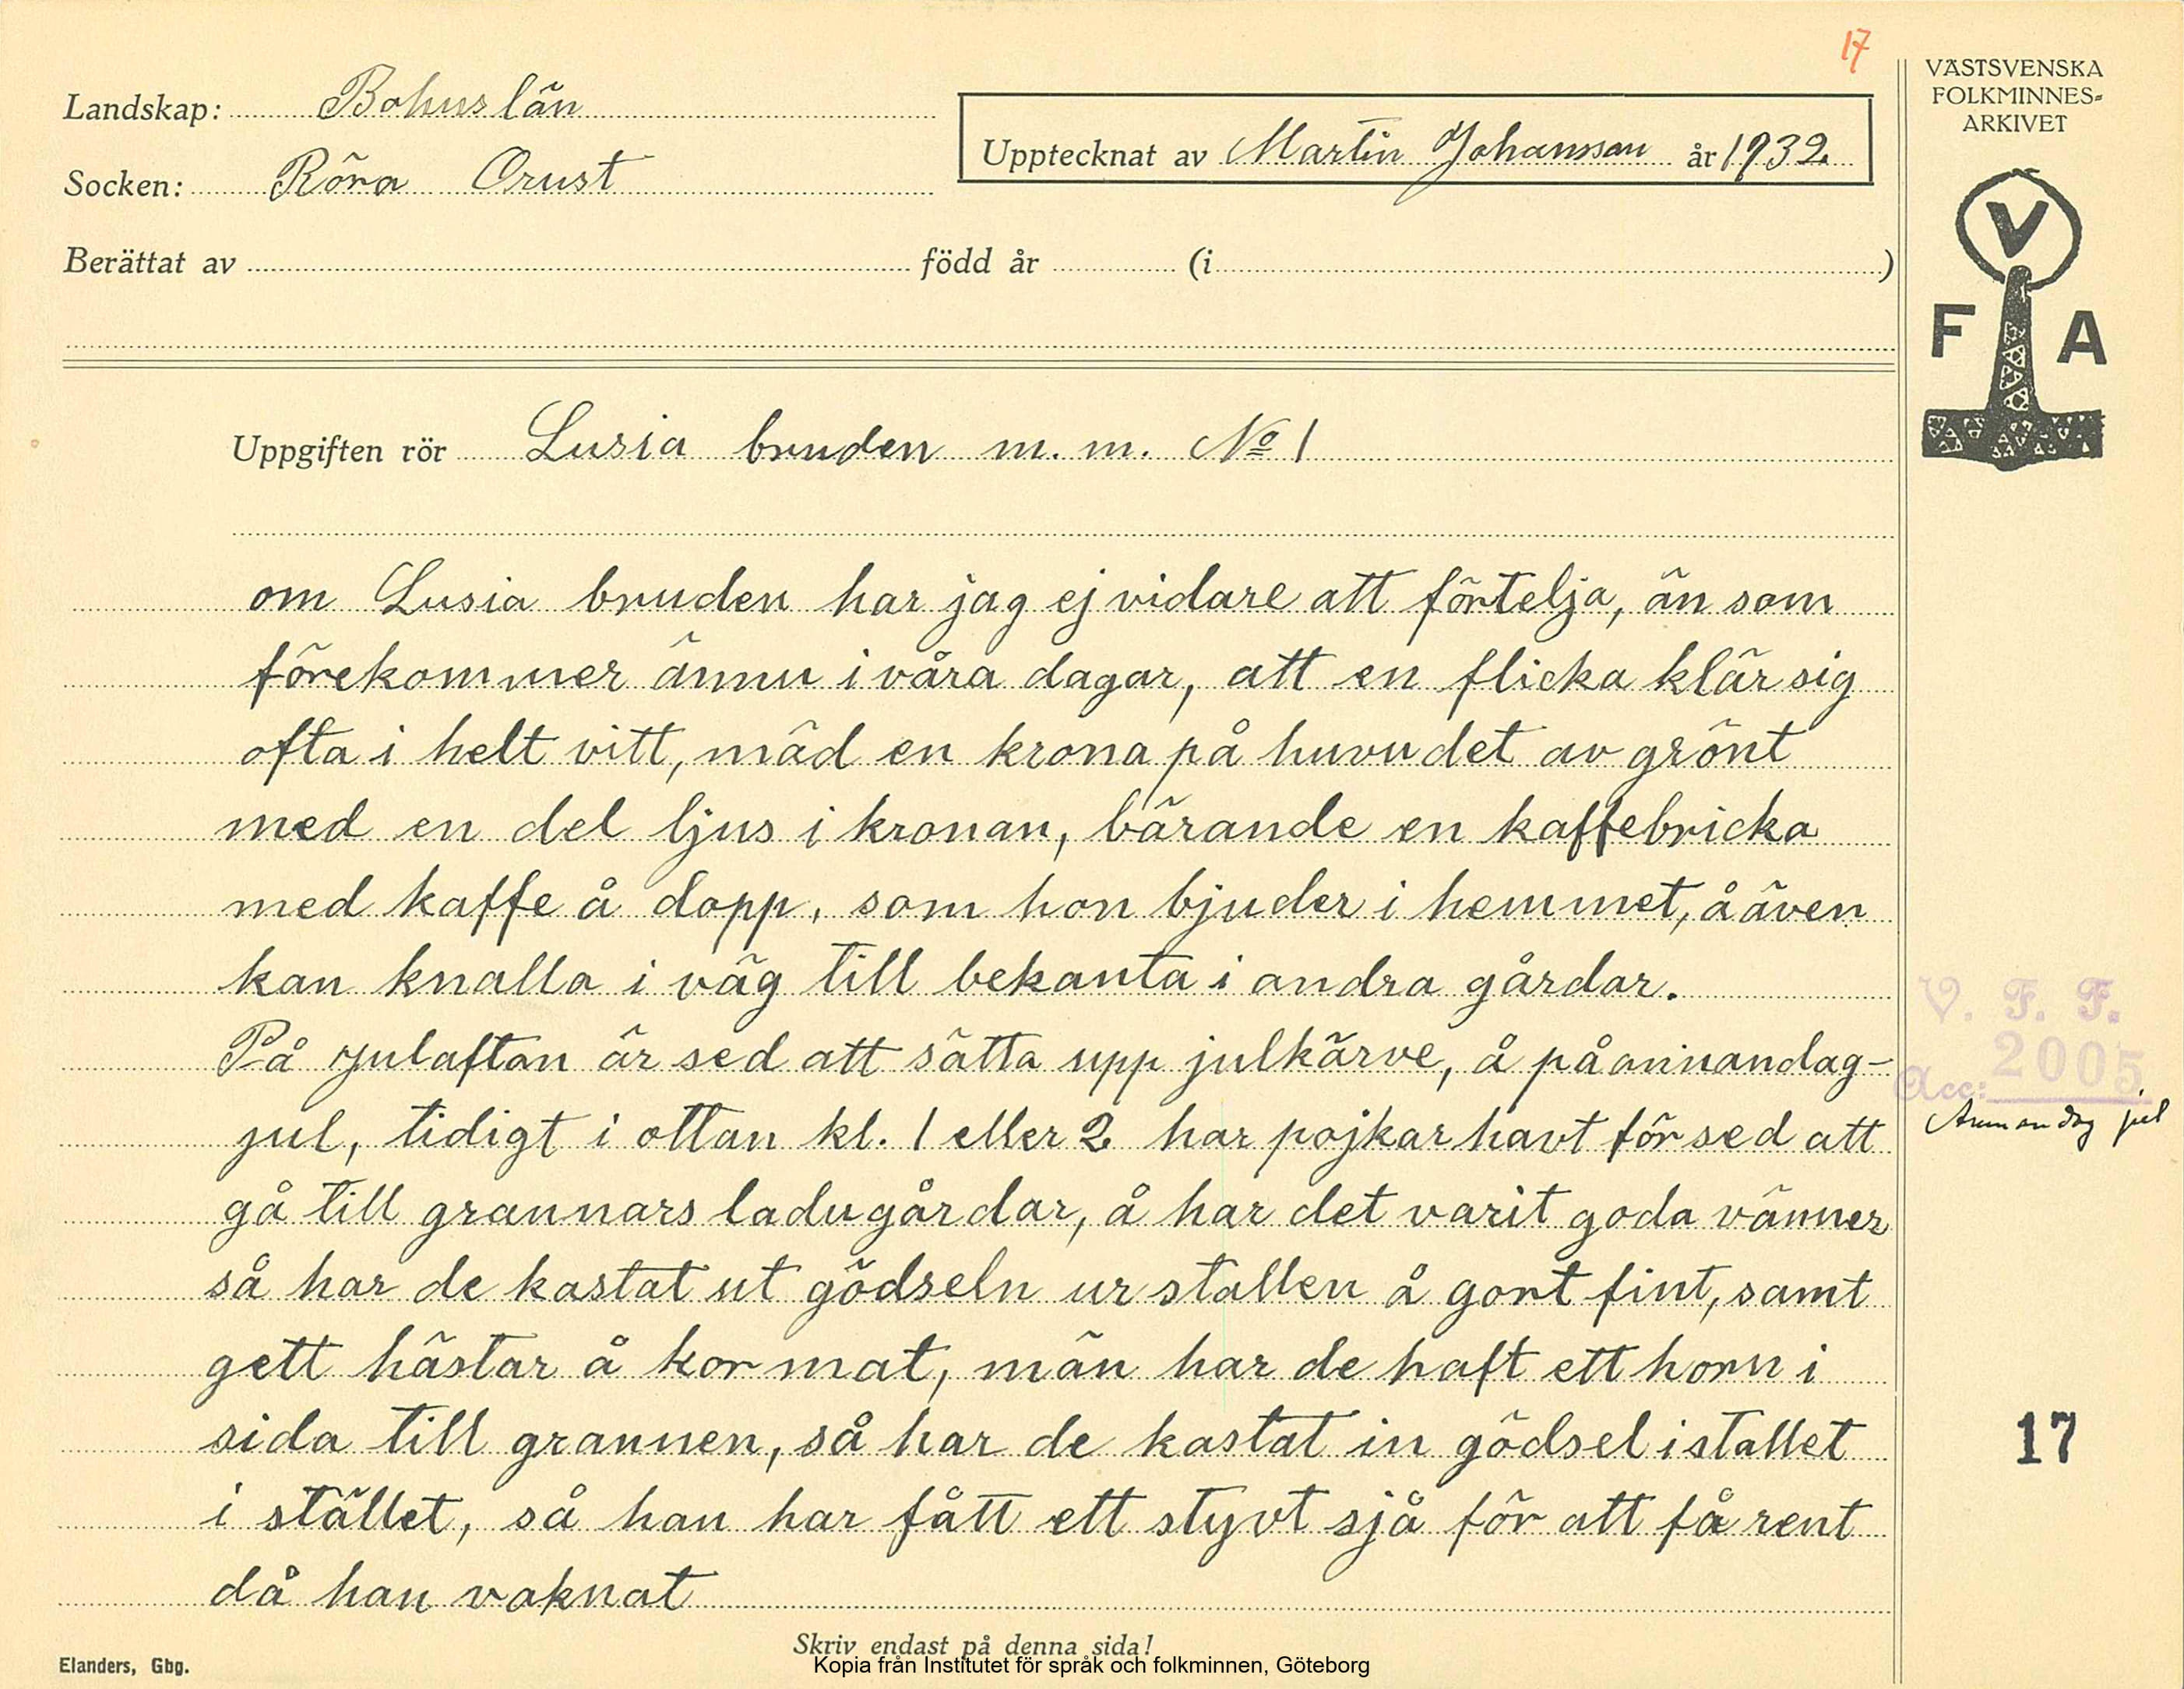 17
Landskap: Bohuslän
Socken: Röra Orust
Upptecknat av Martin Johansson år 1932.
Berättat av född år (i )
VÄSTSVENSKA
FOLKMINNES-
ARKIVET
V
F A
Uppgiften rör Lusia bruden m. m. No 1
om Lusia bruden har jag ej vidare att förtelja, än som
förekommer ännu i våra dagar, att en flicka klär sig
ofta i helt vitt, mäd en krona på huvudet av grönt
med en del ljus i kronan, bärande en kaffebricka
med kaffe å dopp, som hon bjuder i hemmet, å även
kan knalla i väg till bekanta i andra gårdar.
På Julaftan är sed att sätta upp julkärve, å på annandag-
jul, tidigt i ottan kl. 1 eller 2 har pojkar havt för sed att
gå till grannars ladugårdar, å har det varit goda vänner
så har de kastat ut gödseln ur stallen å gort fint, samt
gett hästar å kor mat, män har de haft ett horn i
sida till grannen, så har de kastat in gödsel i stallet
i stället, så han har fått ett styvt sjå för att få rent
då han vaknat
V. F. F.
2005
Acc:
Annandag jul
17
Skriv endast på denna sida!
Elanders, Gbg.
Kopia från Institutet för språk och folkminnen, Göteborg